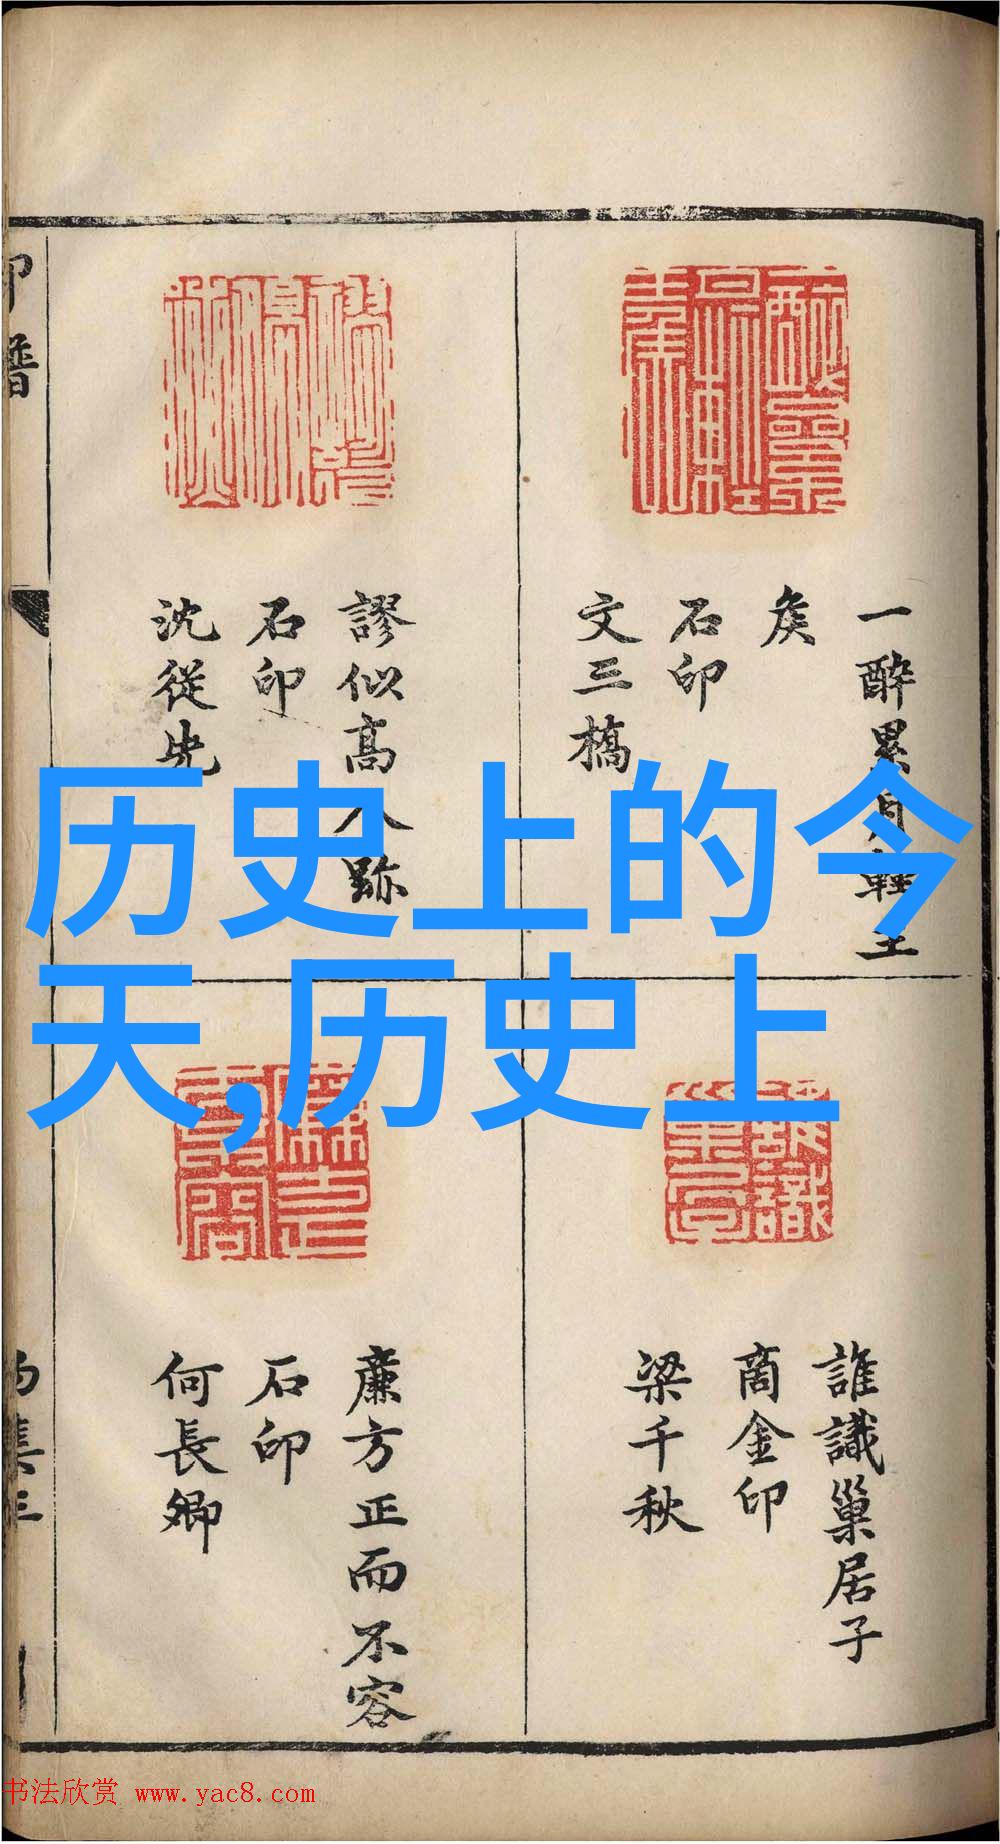 印譜
一醉累月輕王
矦
石印
文三橋
謬似髙人跡
石印
沈從先
誰識巢居子
商金印
梁千秋
廉方正而不容
石印
何長卿
历史上的今
天,历史上
书法欣赏 www.yac8.com